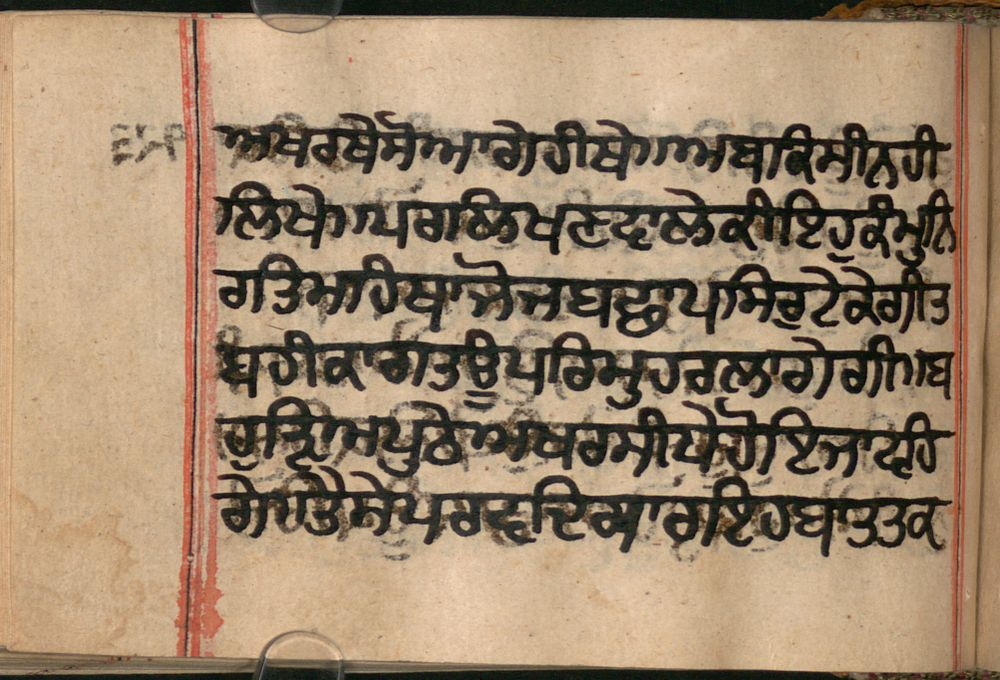 ਅਖਰਥੇਸੋਆਗੇਹੀਥੇ॥ਅਬਕਿਸੀਨਹੀ
ਲਿਖੇ॥ਪਰਾਲਿਖਣਵਾਲੇਕੀਇਹੁਕੰਮੁਨਿ
ਗਤਿਮਾਹਿਥਾਜੋਜਬਛਾਪਸਿਰੁਟੇਕੇਗੀਤ
ਬਹੀਕਾਗਤਊਪਰਿਮੁਹਰਲਾਗੇਗੀ॥ਬ
ਹੁੜਿਅਪੁਠੇਅਖਰਸੀਧੇਹੋਇਜਾਵਹਿ
ਗੇਹਤੈਸੇਪਰਵਦਿਗਾਰਇਹਬਾਤਤਕ